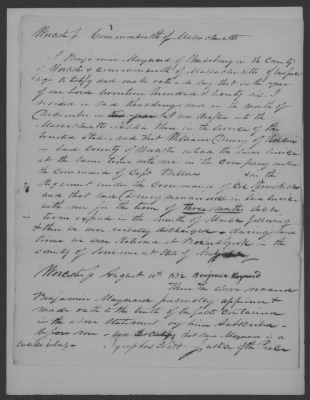 Worcester ss Commonwealth of Massachusetts
I Benjamin Maynard of Shrewsbury in the County
of Worcester & Commonwealth of Massachusetts of
age to testify and make oath & say that in the year
of our Lord seventeen hundred & seventy six I
resided in said Shrewsbury and in the month of
December in this year I was drafted into the
Massachusetts Militia then in the service of the
United States and that William
in said County of Worcester entered the same service
at the same time with me in the Company under
the Command of Capt & in the
Regiment under the Command of Col
and that said remained in said service
with me for the term of three months which
term expired in the month of March following
& then we were regularly discharged – during said
time we were stationed at Boundbrook in the
County of Somerset & State of New Jersey
Worcester ss August 10th 1832 Benjamin Maynard
Then the above named
Benjamin Maynard personally appeared &
made oath to the truth of the facts contained
in the above statement by him subscribed –
before me – and certify that said Maynard is a
credible witness – Nymphas Pratt Justice of the Peace